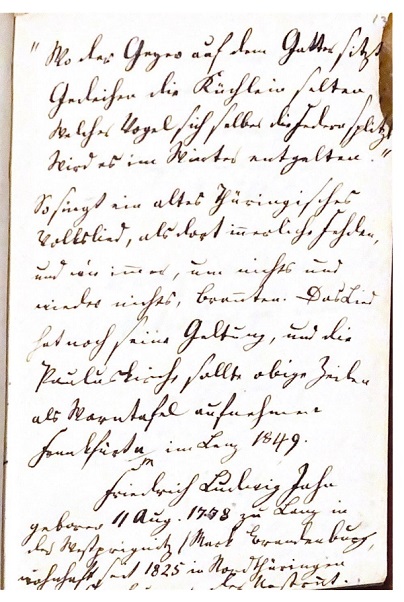 "Wo der Geyer auf dem Gatter sitzt
Gedeihen die Küchlein selten
Welcher Vogel sich selber die Federn splitzt
Wird es im Winter entgelten."
So singt ein altes Thüringisches
Volkslied, als dort innerliche Fehden,
und wie immer, um nichts und
wieder nichts, brannten. Das Lied
hat noch seine Geltung, und die
Pauluskirche sollte obige Zeilen
als Warntafel aufnehmen
Frankfurt a m im Lenz 1849.
Friedrich Ludwig Jahn
geboren 11 Aug. 1778 zu Lanz in
der Westprignitz / Mark Brandenburg,
wohnhaft seit 1825 in Nordthüringen
der Unstrut.